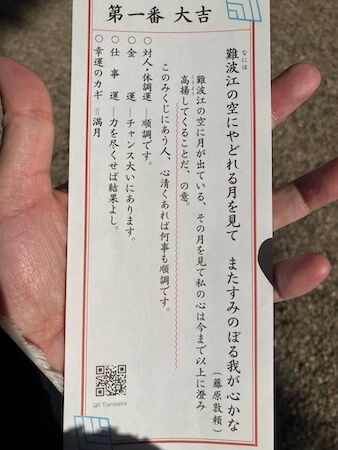 第一番 大吉
なには
難波江の空にやどれる月を見て　またすみのぼる我が心かな
（藤原敦頼）
難波江の空に月が出ている、その月を見て私の心は今まで以上に澄み
こうよう
高揚してくることだ、の意。
このみくじにあう人、心清くあれば何事も順調です。
○対人・体調運＝順調です。
○金運＝チャンス大いにあります。
○仕事運＝力を尽くせば結果よし。
○幸運のカギ＝満月
QR Translator